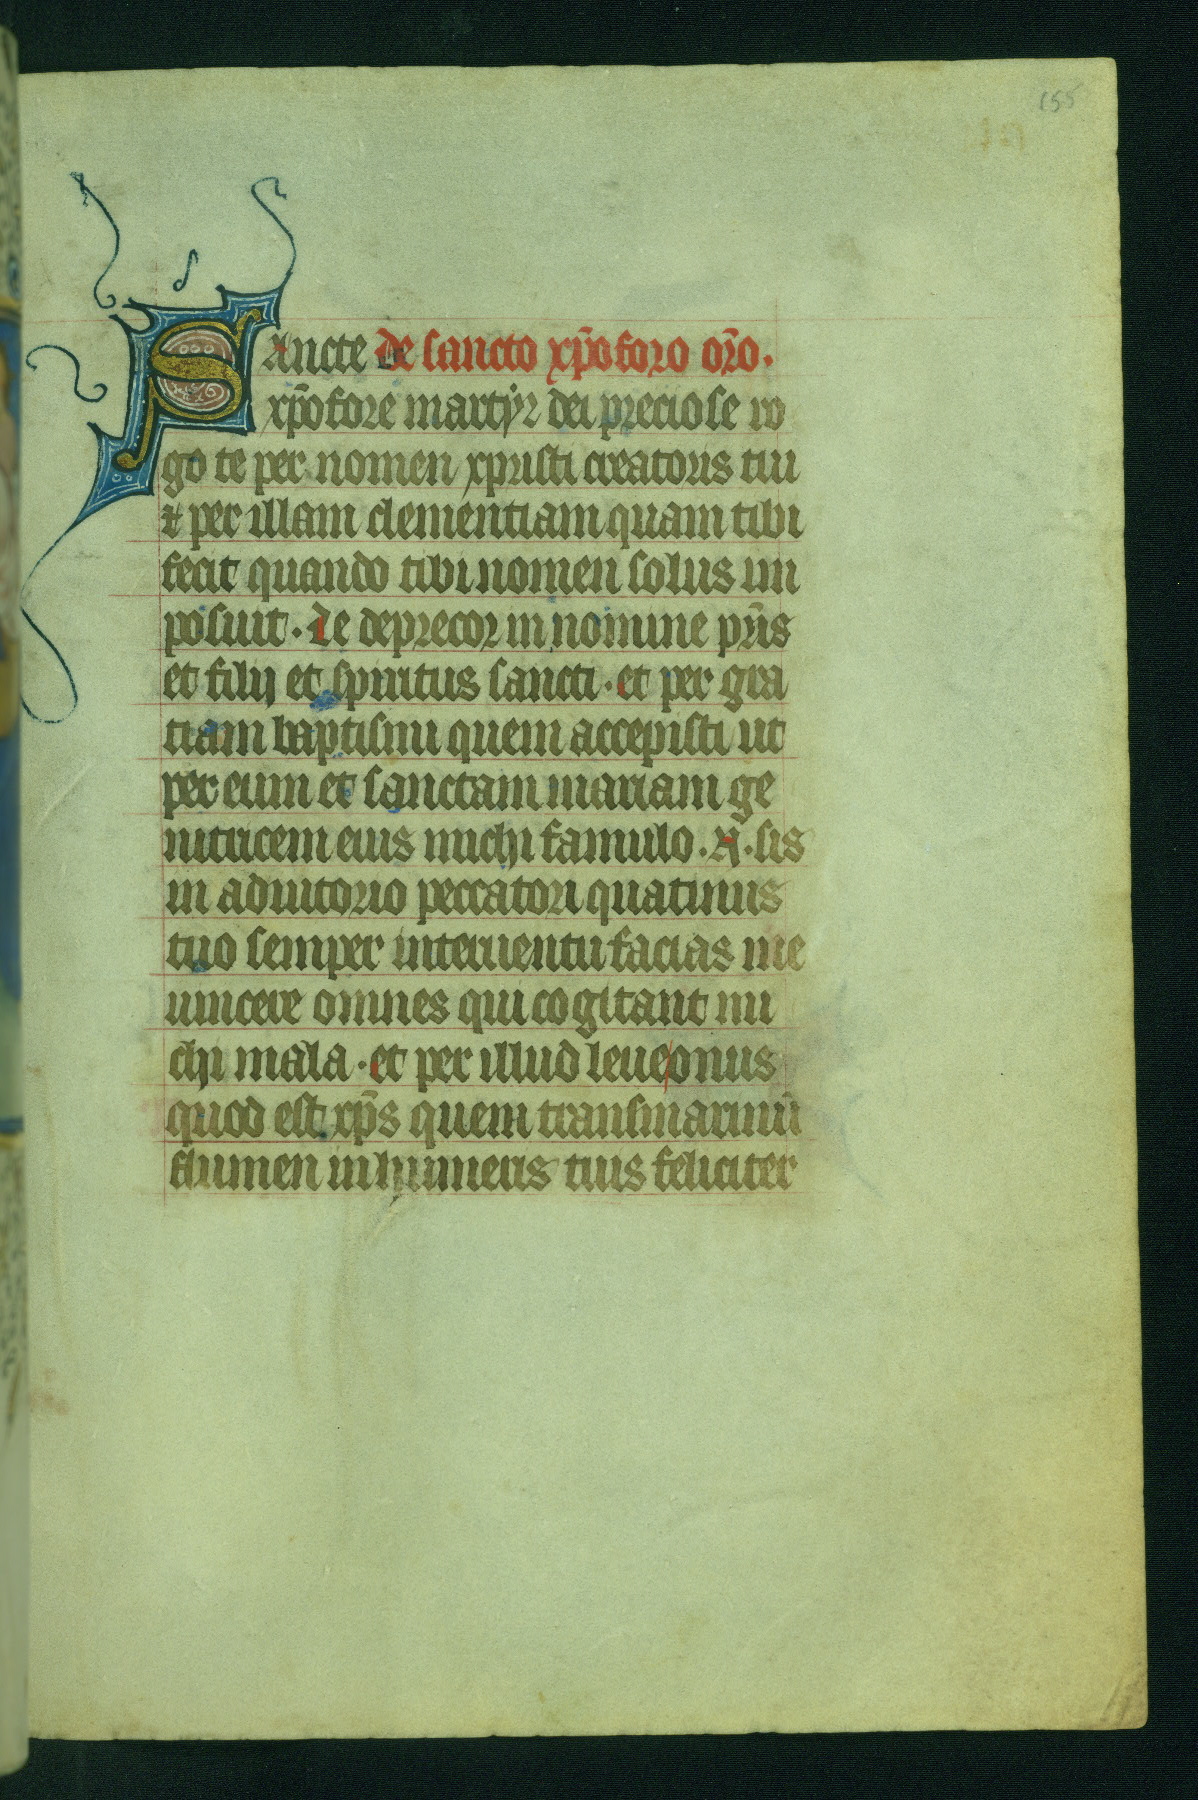 155
Sancte de sancto xp̄oforo or̄o.
xp̄ofore martẏr dei preciose ro
go te per nomen xpristi creatoris tui
⁊ per illam clementiam quam tibi
fecit quando tibi nomen solus im
posuit. Te deprecor in nomine pr̄is
et filij et spiritus sancti. et per gra
tiam baptismi quem accepisti ut
per eum et sanctam mariam ge
nitricem eius michi famulo .N. sis
in adiutorio peccatori quatinus
tuo semper interuentu facias me
uincere omnes qui cogitant mi
chi mala. et per illud leue onus
quod est xp̄s quem transmarinū
flumen in humeris tuis feliciter